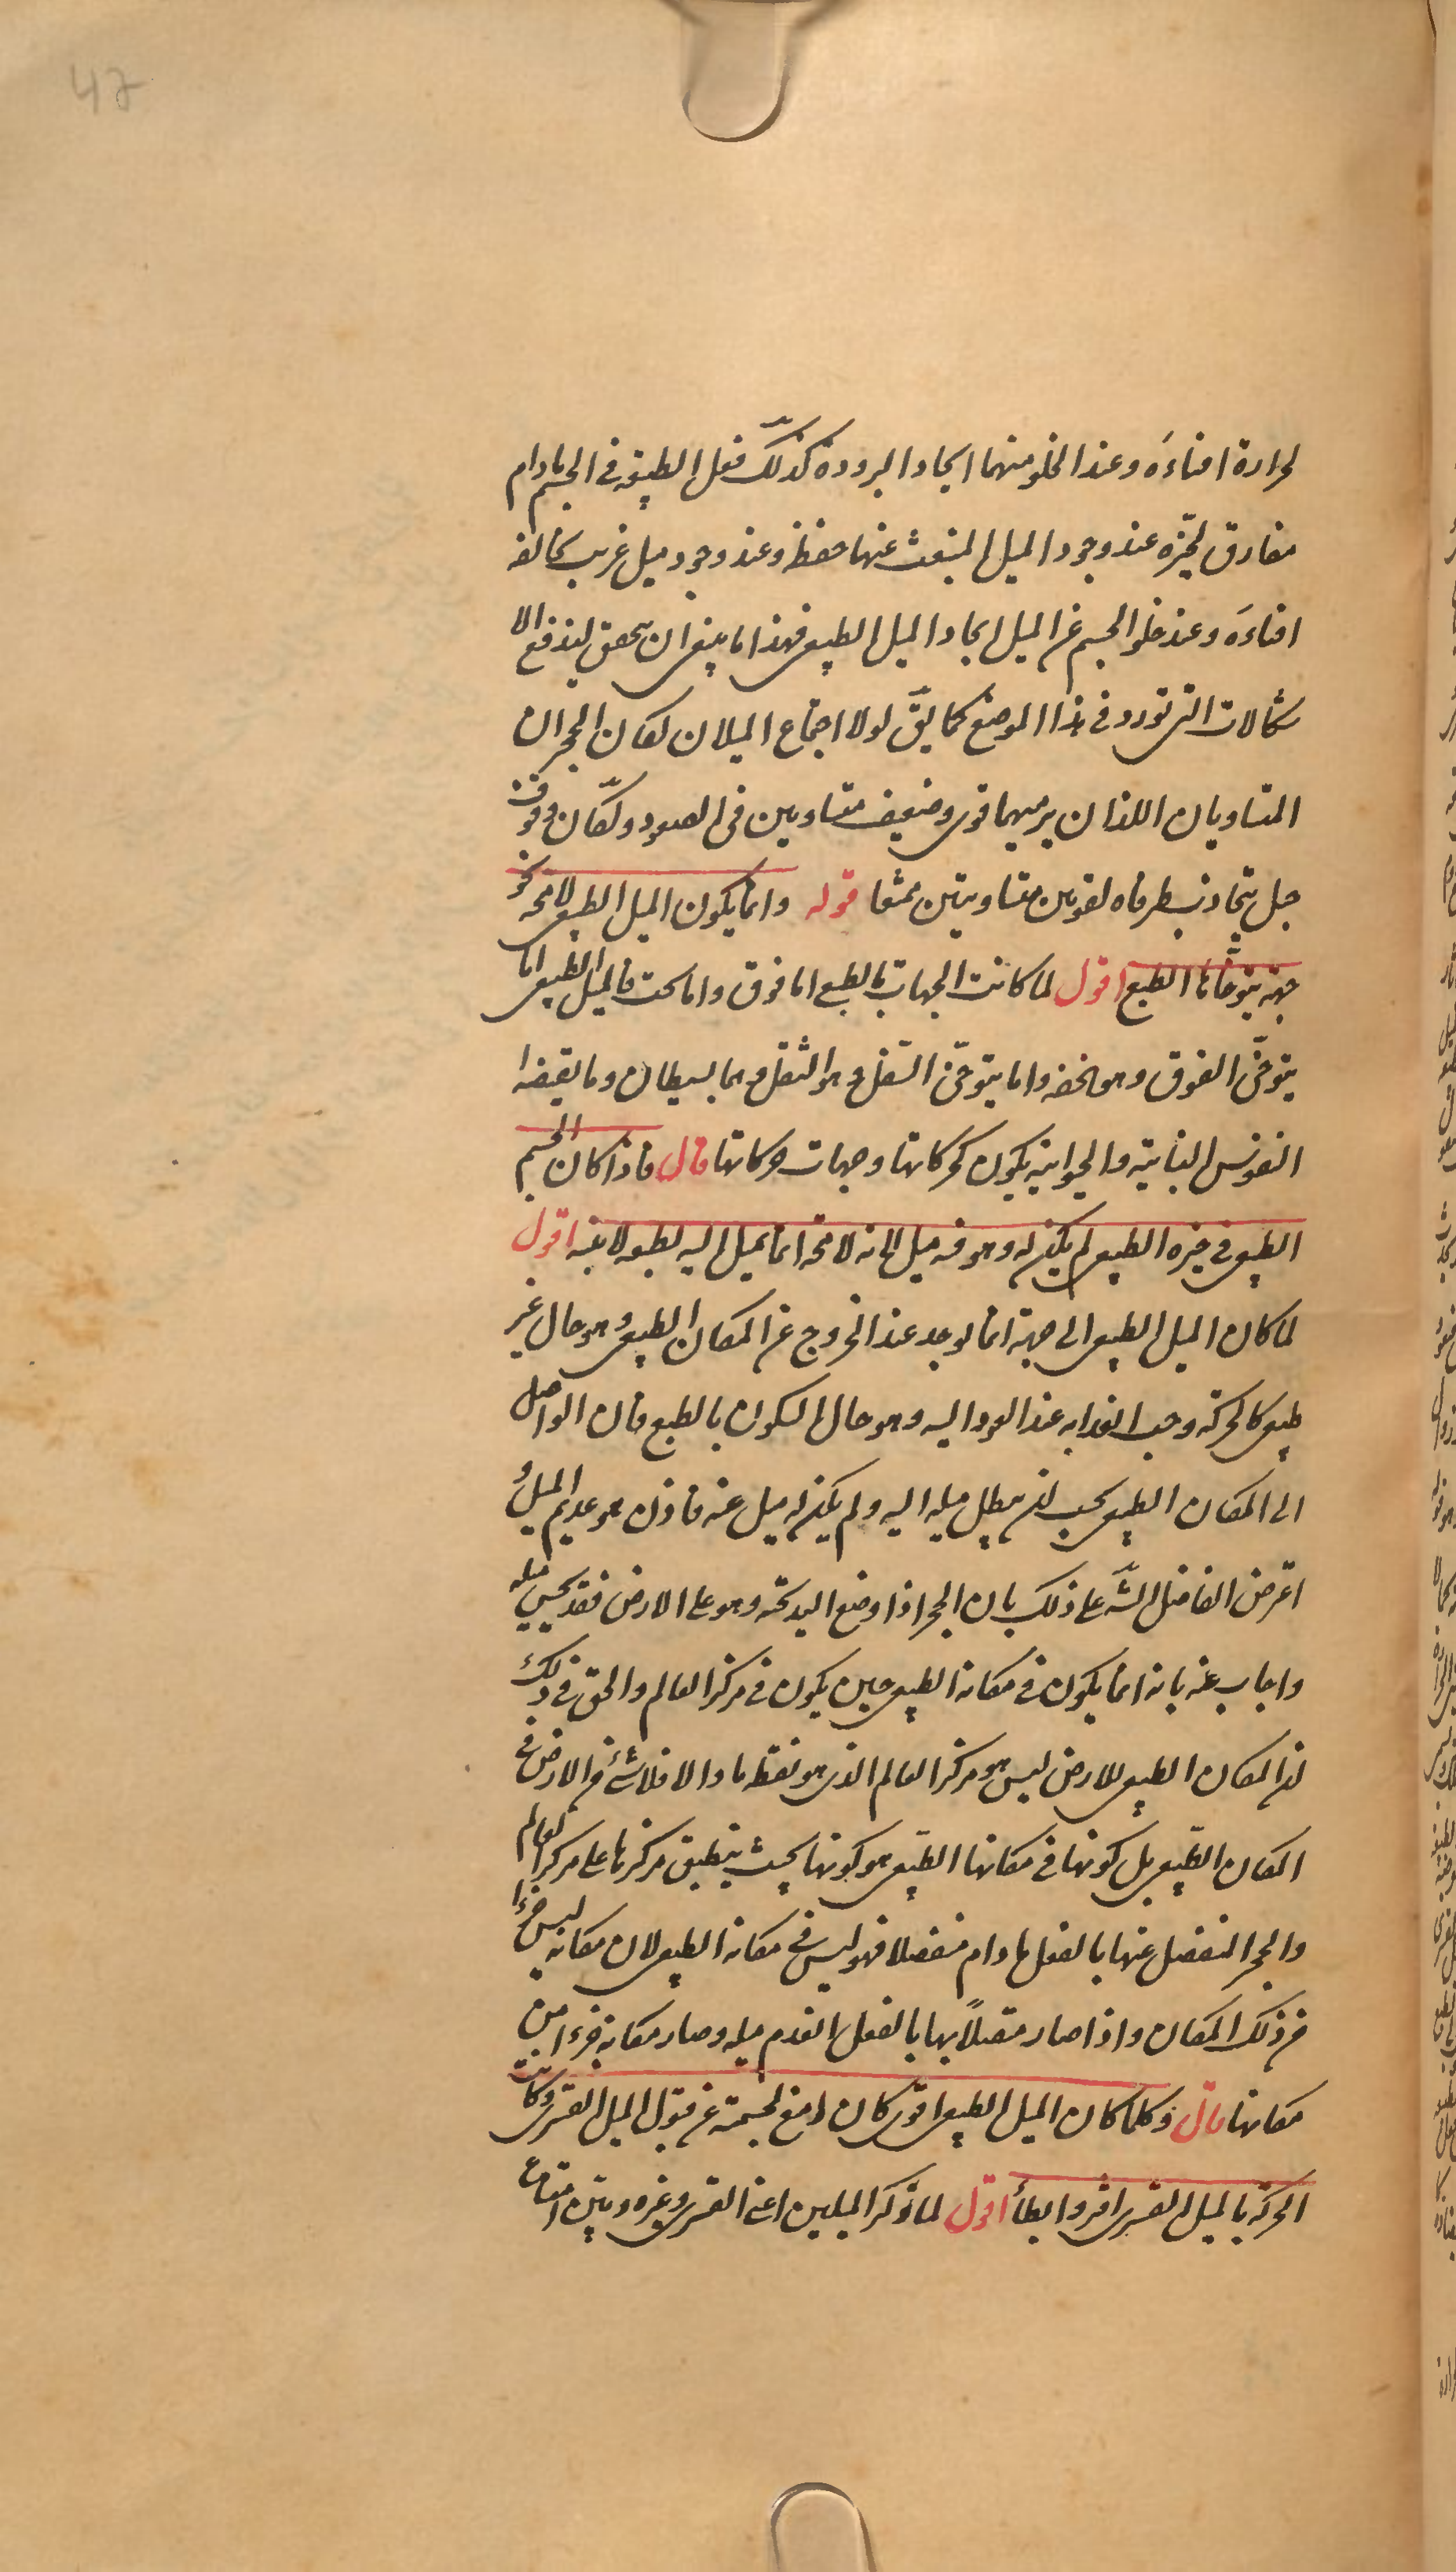 47
لحرارة افناءَه وعند الخلو منهما ايجاد البرودة كذلك فعل الطبيعة في الجسم مادام
مفارق لحيّزه عند وجود الميل المنبعث عنها حفظه وعند وجود ميل غريب يخالفه
افناءَه وعند خلو الجسم عن الميل ايجاد الميل الطبيعى فهذا ما ينبغى ان يتحقق ليندفع الا
شكالات التى تورد فى هذا الموضع كما يقّ لولا اجتماع الميلان لكان الحجران
المتساويان اللذان يرميهما قوى وضعيف متساويين فى الصعود ولكان وقوف
حبل يتجاذب طرفاه لقوتين متساويتين ممتنعا قوله وانما يكون الميل الطبيعى لا محّه نحو
جهة يتوخّاها الطبع اقول لما كانت الجهات بالطبع اما فوق واما تحت فالميل الطبيعى اما
يتوخّى الفوق وهو الخفه واما يتوخّى السّفل وهو الثقل وهما بسيطان وما يقتضيه
النفوس النباتية والحيوانية يكون كحركاتها وجهات حركاتها قال فاذا كان الجسم
الطبيعى فى حيزه الطبيعى لم يكن له وهو فيه ميل لانه لا محّه انما يميل اليه بطبعه لا عنه اقول
لما كان الميل الطبيعى الى جهة انما يوجد عند الخروج عن المكان الطبيعى وهو حال غير
طبيعى كالحركة وجب انعدامه عند العود اليه وهو حال السكون بالطبع فان الواصل
الى المكان الطبيعى يجب ان يبطل ميله اليه ولم يكن له ميل عنه فاذن هو عديم الميل و
اعترض الفاضل الشّه على ذلك بان الحجر اذا وضع اليد تحته وهو على الارض فقد يحسّ ميله
واجاب عنه بانه انما يكون فى مكانه الطبيعى حين يكون فى مركز العالم والحق فى ذلك
ان المكان الطبيعى للارض ليس هو مركز العالم الذى هو نقطه ما والا فلا شئ من الارض فى
المكان الطّبيعى بل كونها فى مكانها الطّبيعى هو كونها بحيث ينطبق مركزها على مركز العالم
والحجر المنفصل عنها بالفعل ما دام منفصلا فهو ليس فى مكانه الطبيعى لان مكانه ليس جزءا
من ذلك المكان واذا صار متصلاً بها بالفعل انعدم ميله وصار مكانه جزءا من
مكانها قال وكلما كان الميل الطبيعى اقوى كان امنع لجسمه عن قبول الميل القسرى وكانت
الحركة بالميل القسرى افتر وابطأ اقول لما ذكر الميلين اعنى القسرى وغيره وبيّن امتناع